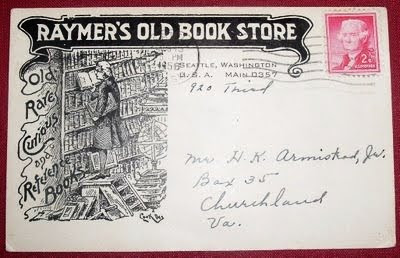 RAYMER'S OLD BOOK STORE
SEATTLE, WASHINGTON
U. S. A. MAIN 0357
920 Third
Old
Rare
Curious
and
Reference
Books
2¢
Mr. H. K. Armistead, Jr.
Box 35
Churchland
Va.